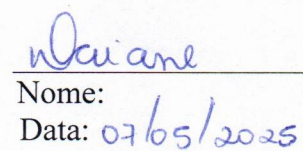 Daiane
Nome:
Data: 07/05/2025